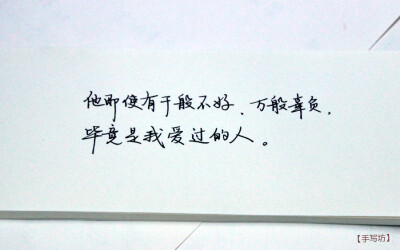 他即使有千般不好、万般辜负，
毕竟是我爱过的人。
【手写坊】